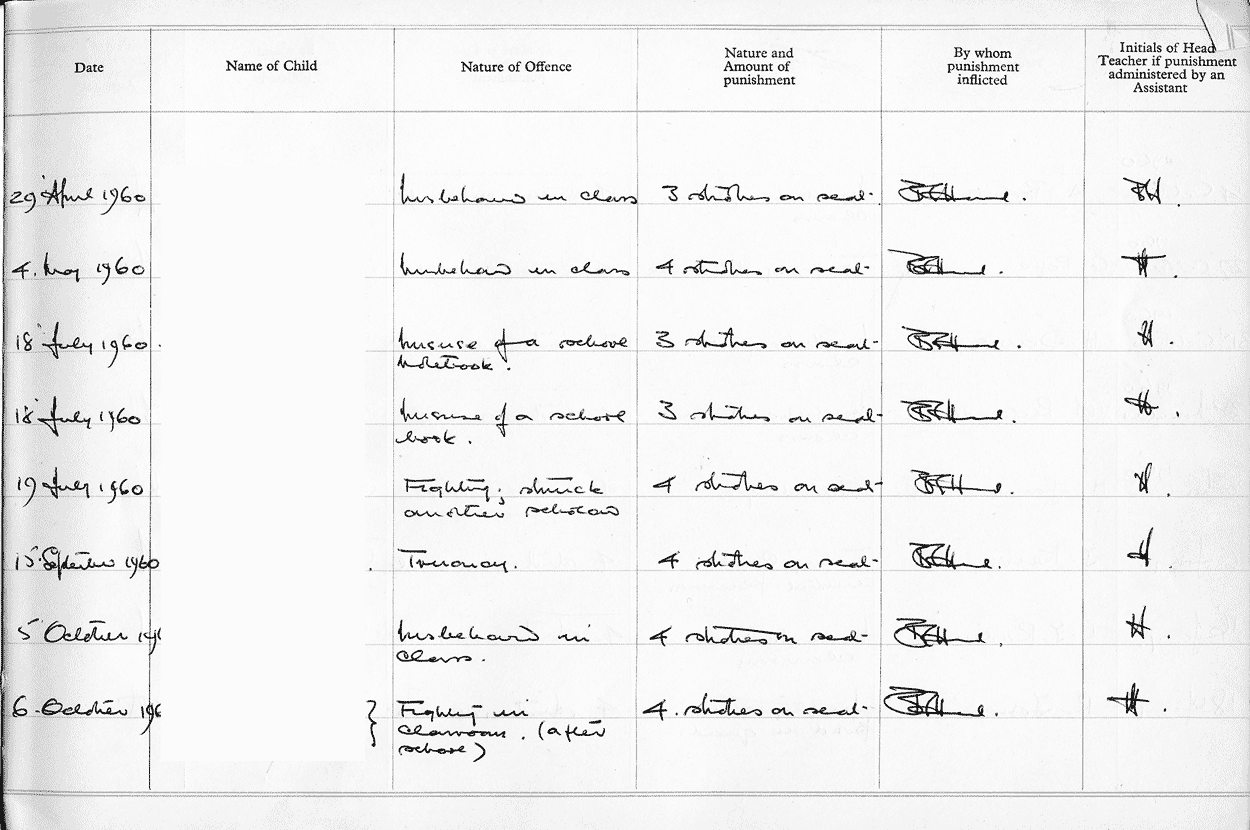 Date Name of Child Nature of Offence Nature and Amount of punishment By whom punishment inflicted Initials of Head Teacher if punishment administered by an Assistant
29 April 1960 Misbehaviour in class 3 strokes on seat.
4. May 1960 Misbehaviour in class 4 strokes on seat
18 July 1960. Misuse of a school 3 strokes on seat
notebook.
18 July 1960 Misuse of a school 3 strokes on seat
book.
19 July 1960 Fighting; struck 4 strokes on seat
another scholar
15 September 1960 Truancy. 4 strokes on seat
5 October 196 Misbehaviour in 4 strokes on seat
class.
6. October 196 Fighting in 4. strokes on seat
classroom. (after
school)